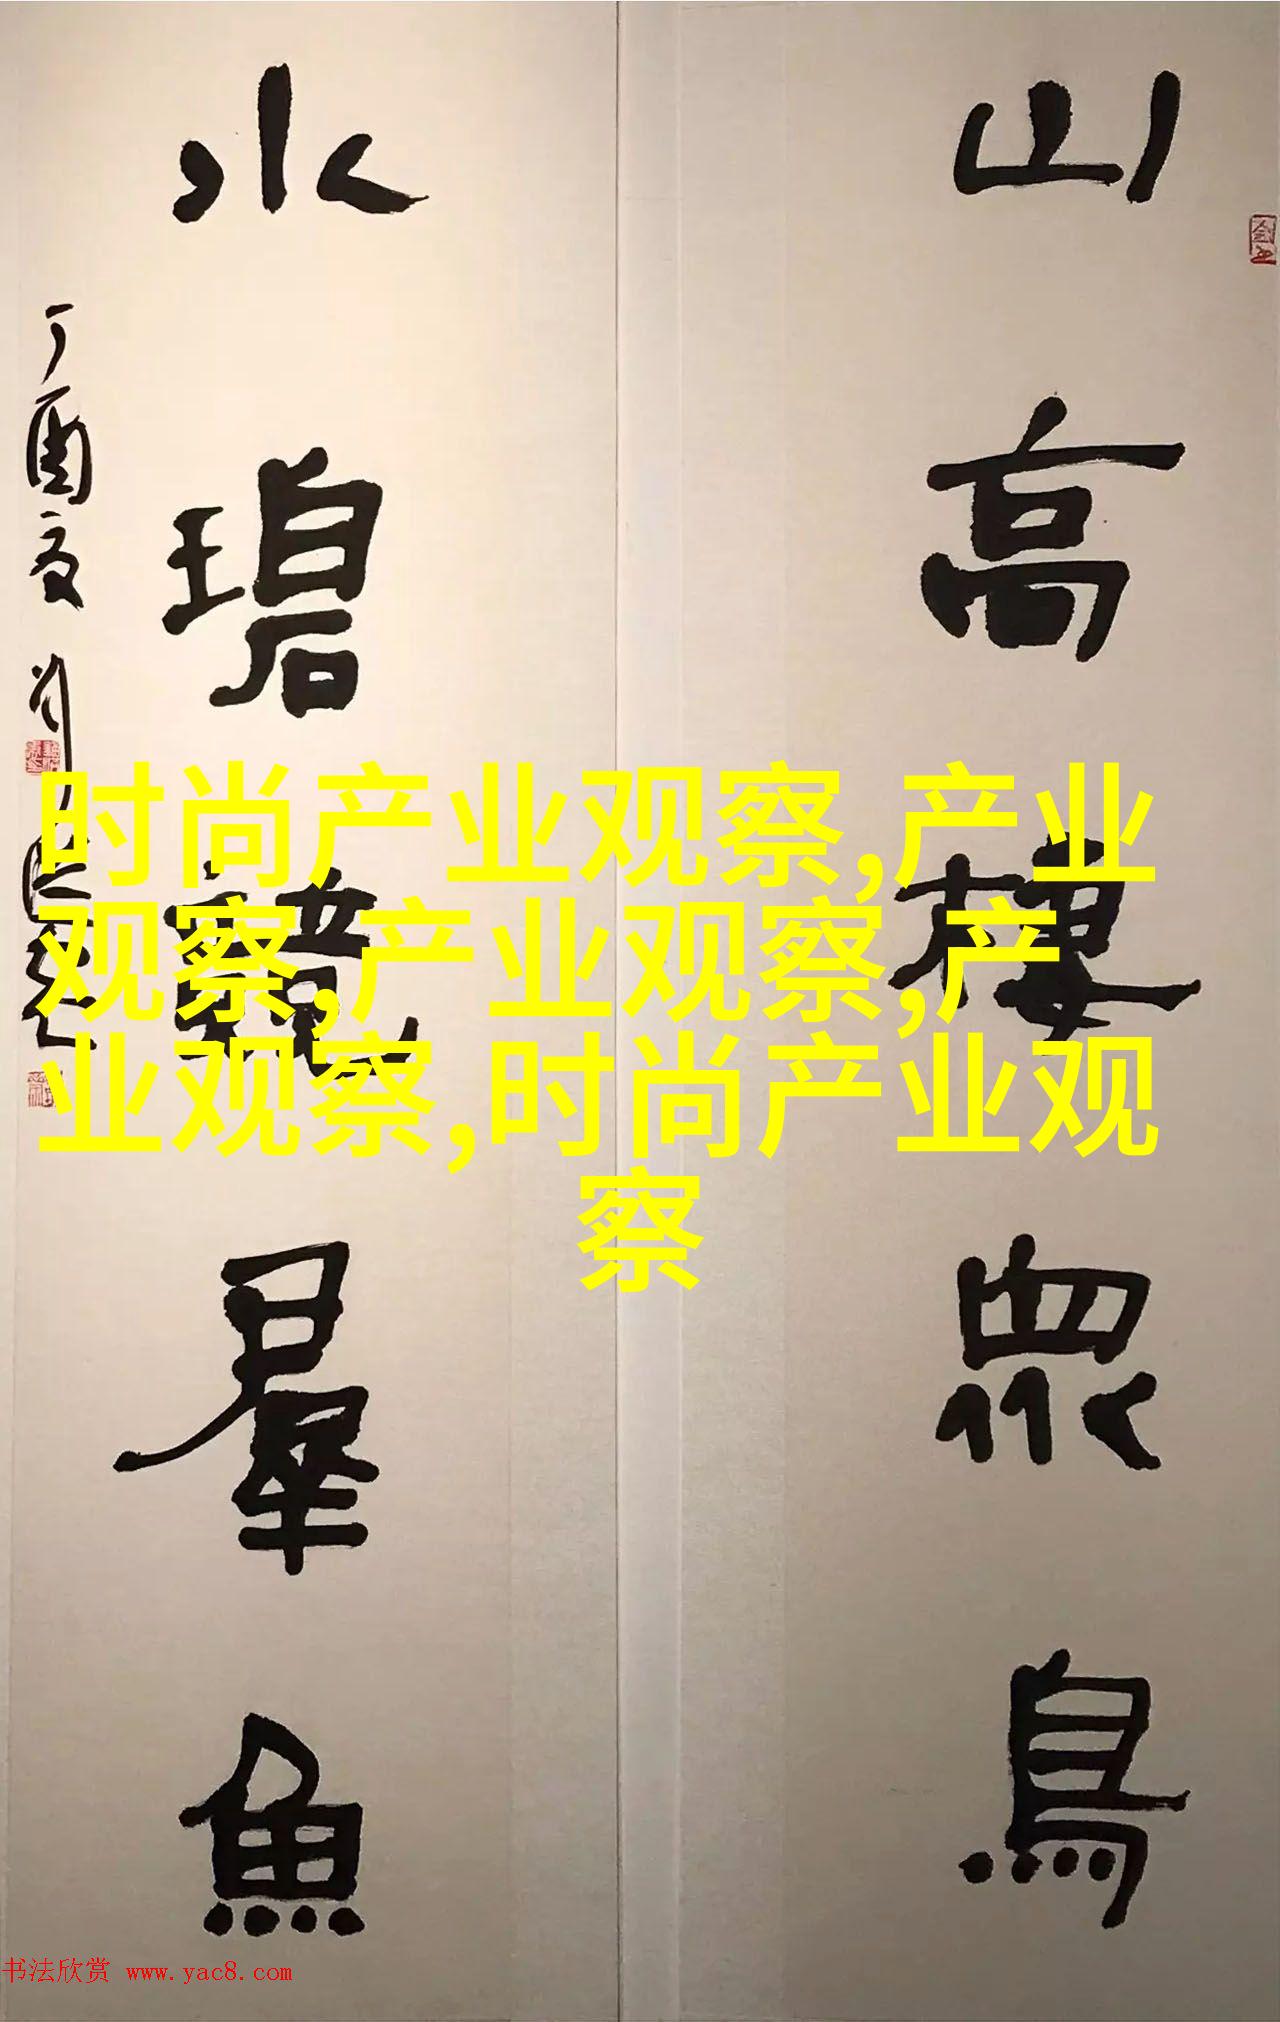 山高眾鳥
水碧羣魚
丁酉夏
时尚产业观察,产业
观察,产业观察,产
业观察,时尚产业观
察
书法欣赏 www.yac8.com